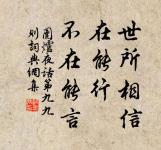 世所相信
在能行
不在能言
圍爐夜話第九九
則詞典網集